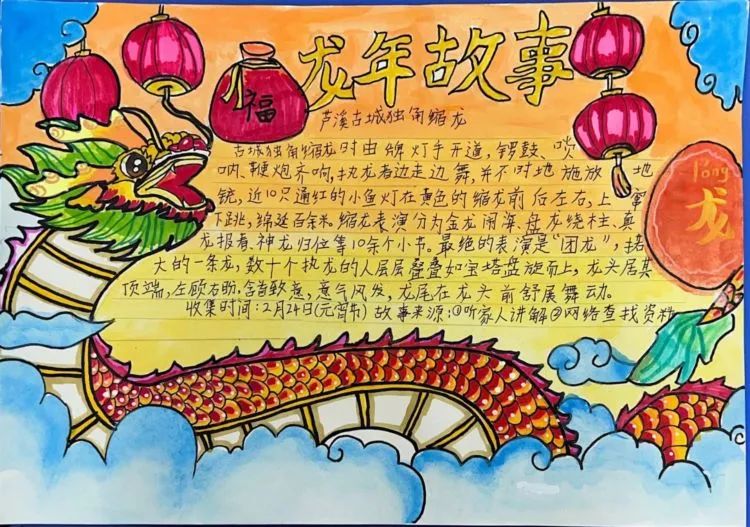 龙年故事
福
芦溪古城独角缩龙
古城独角缩龙时由牌灯手开道,锣鼓、唢
呐、鞭炮齐响,执龙者边走边舞,并不时地施放地
铳,近10只通红的小鱼灯在黄色的缩龙前后左右,上窜
下跳,绵延百余米。缩龙表演分为金龙闹海、盘龙绕柱、真
龙报春、神龙归位等10余个小节。最绝的表演是“团龙”,
大的一条龙,数十个执龙的人层层叠叠如宝塔盘旋而上,龙头居其
顶端,左顾右盼,含首致意,意气风发,龙尾在龙头前舒展舞动。
收集时间:2月24日(元宵节) 故事来源:①听家人讲解②网络查找资料
lóng
龙